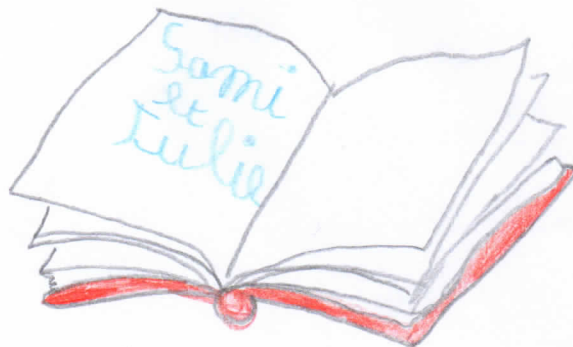 Sami
et
Julie